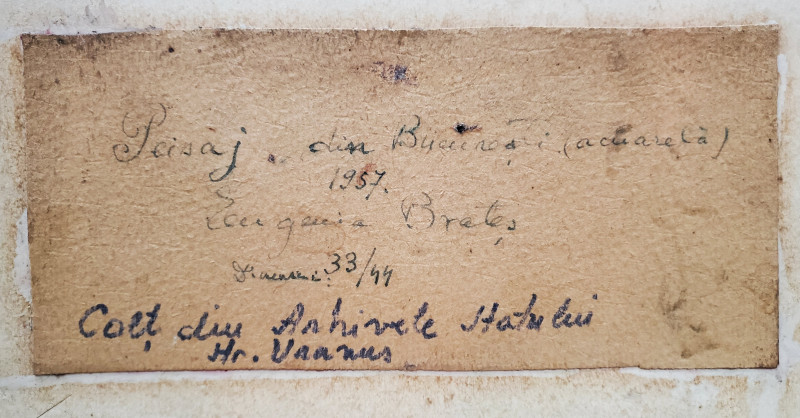 Peisaj din București (acuarelă)
1957.
Eugenia Brateș
Dimensiuni: 33/44
Colț din Arhivele Statului
Str. Uranus